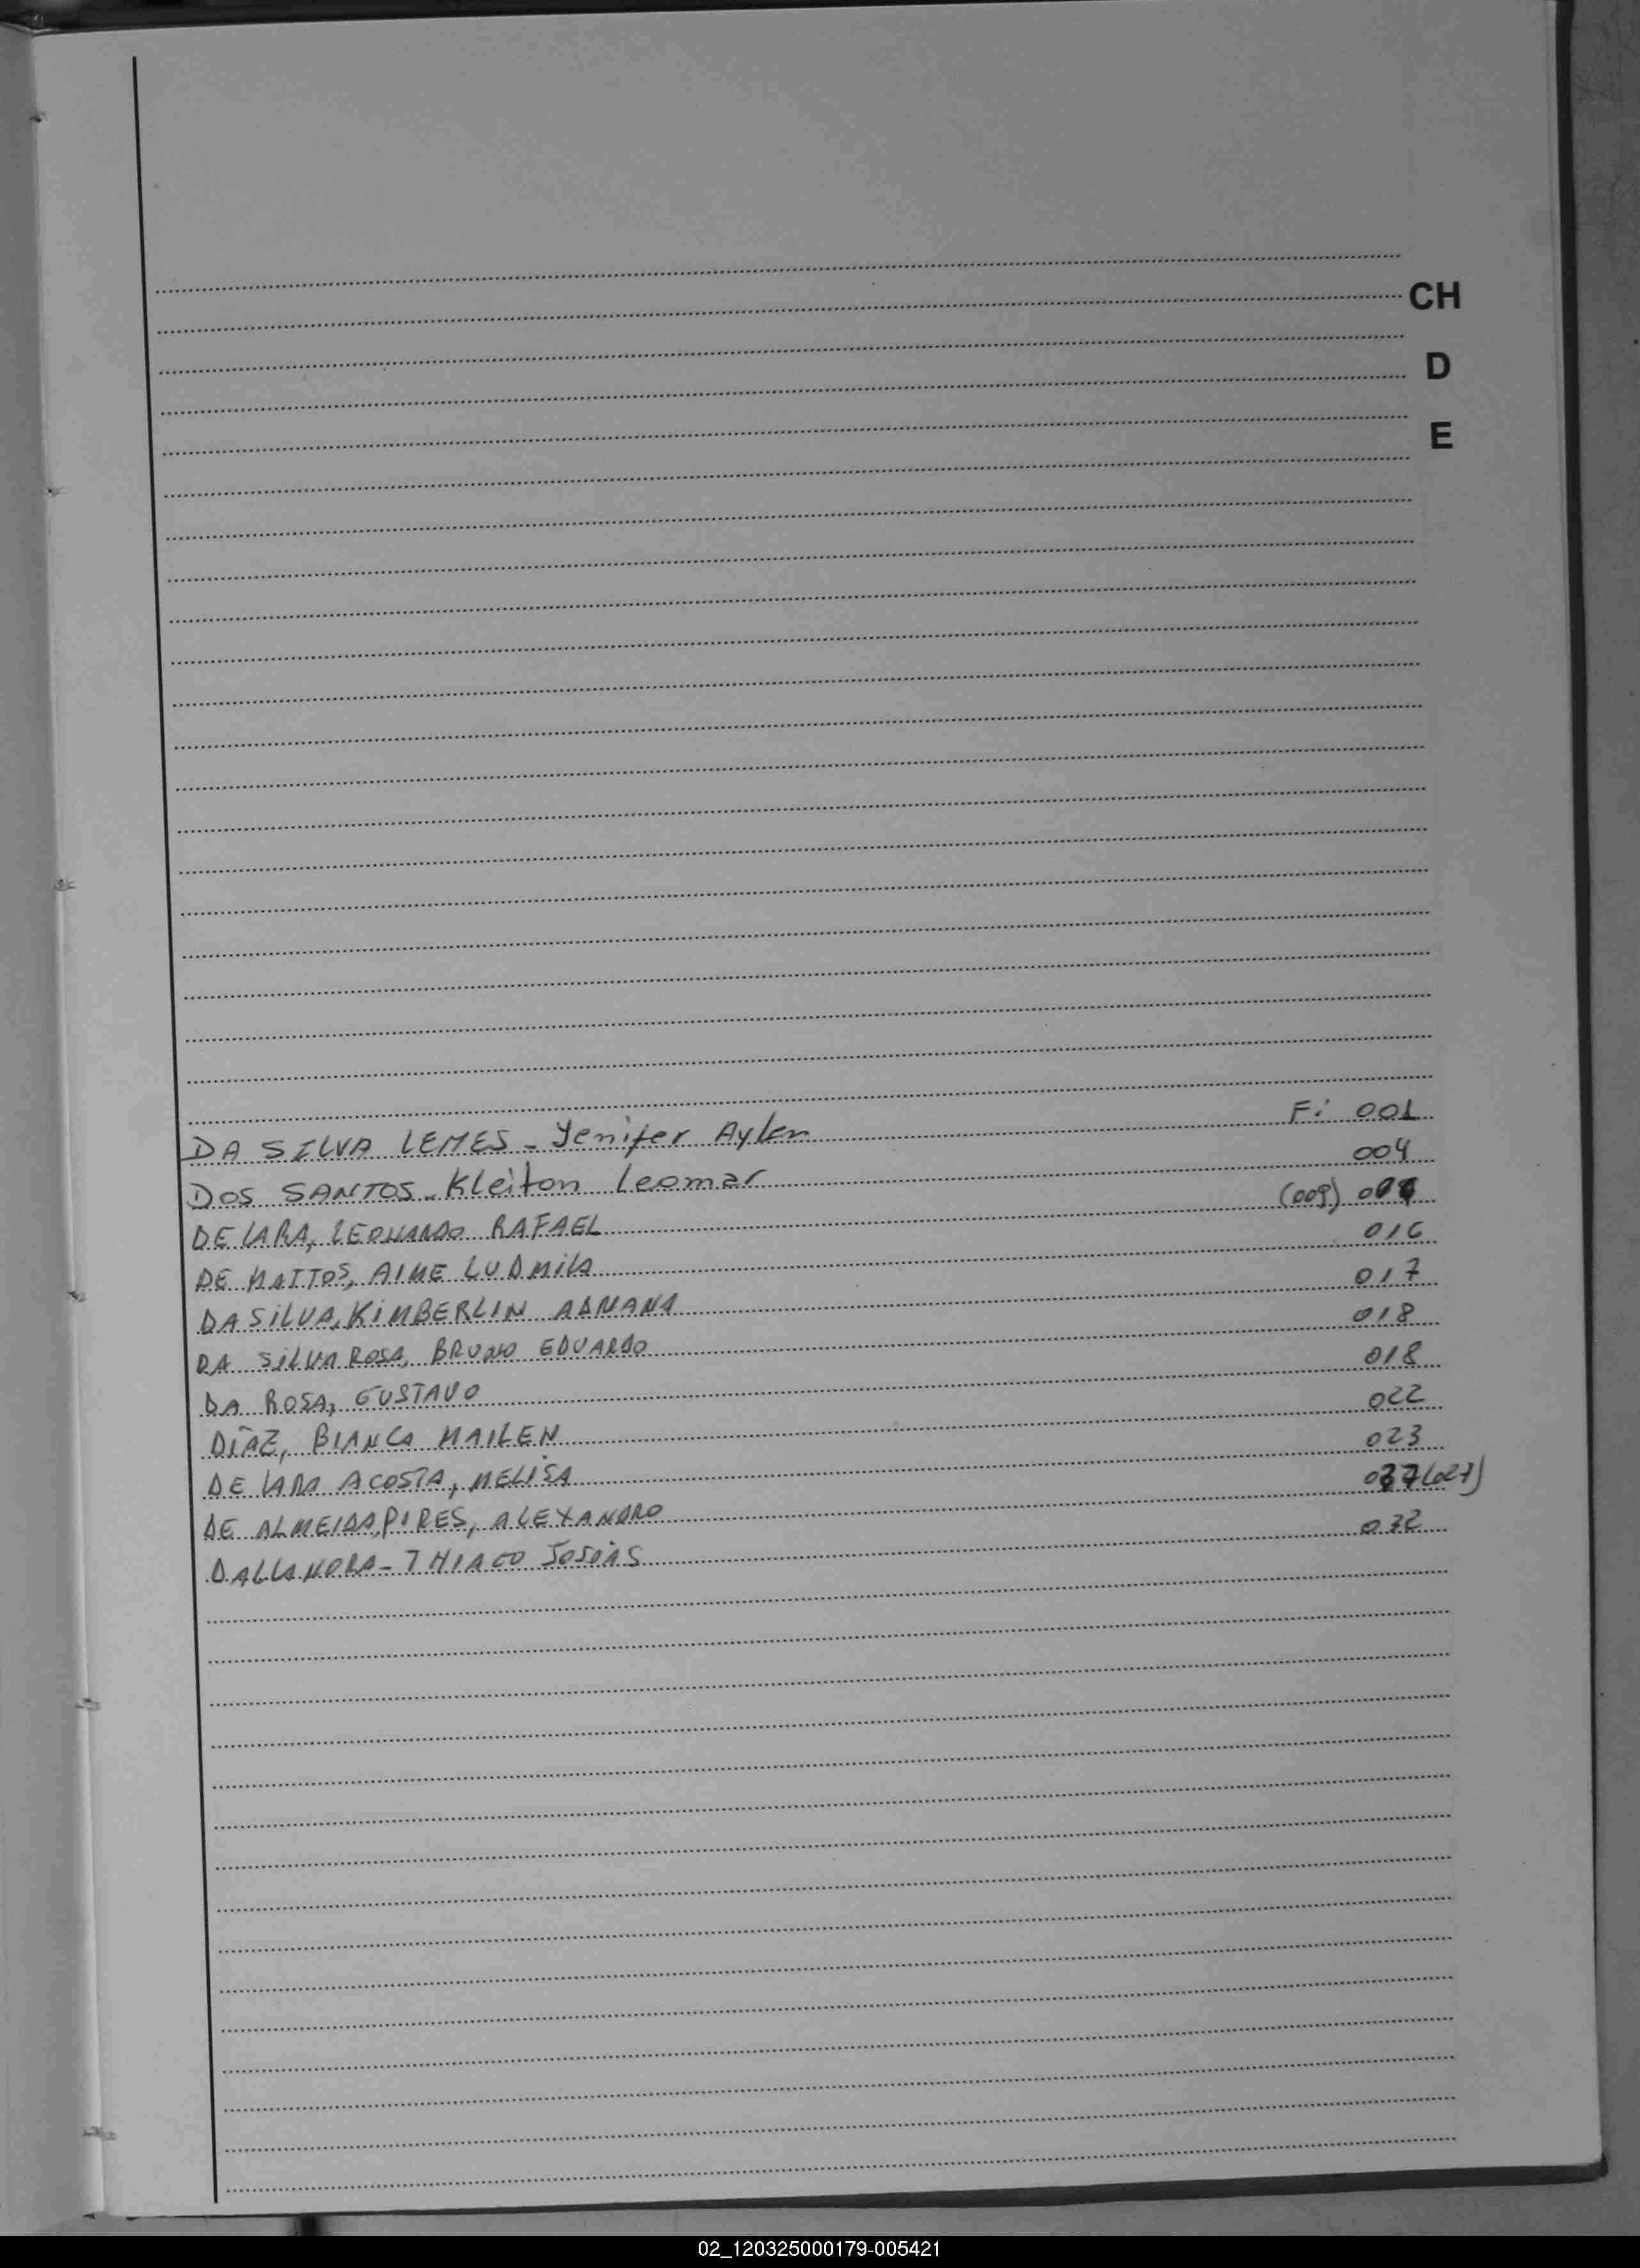 CH
D
E
DA SILVA LEMES - Yenifer Aylen F: 001
DOS SANTOS - Kleiton Leomar 004
DE LARA, LEONARDO RAFAEL (009)
DE MATTOS, AIME LUDMILA 016
DA SILVA, KIMBERLIN 017
DA SILVA ROSA, BRUNO EDUARDO 018
DA ROSA, GUSTAVO 018
DÍAZ, BIANCA MAILEN 022
DE LARA ACOSTA, MELISA 023
DE ALMEIDA PIRES, ALEXANDRO (027)
DALLANORA - THIAGO JOSÍAS 032
02_120325000179-005421